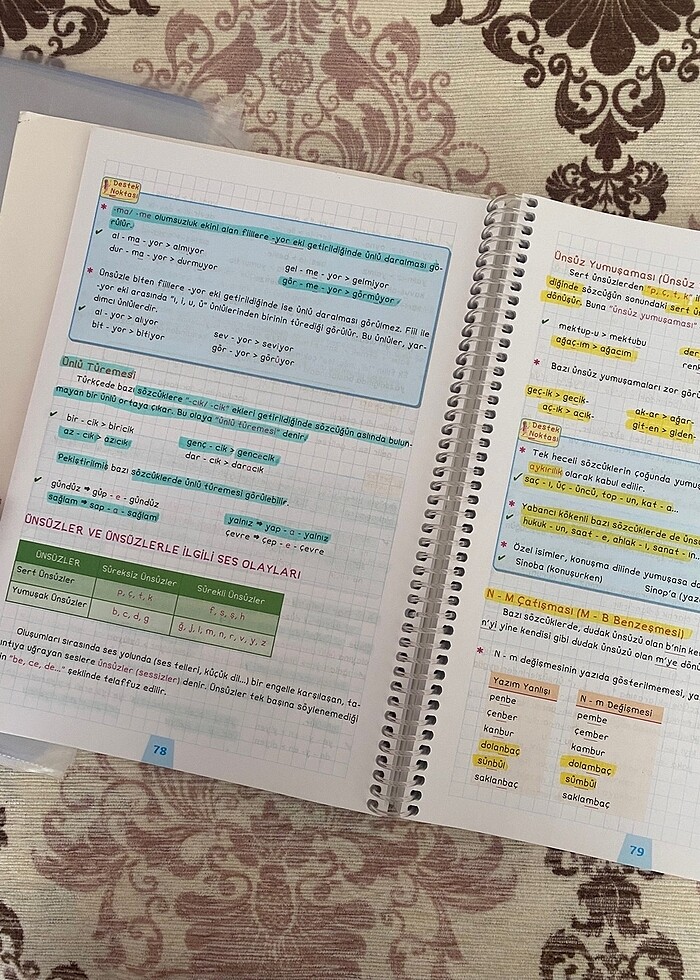 Destek
Noktası
* -ma/ -me olumsuzluk ekini alan fiillere -yor eki getirildiğinde ünlü daralması gö-
rülür.
✓ al - ma - yor > almıyor
dur - ma - yor > durmuyor
gel - me - yor > gelmiyor
gör - me - yor > görmüyor
* Ünsüzle biten fiillere -yor eki getirildiğinde ise ünlü daralması görülmez. Fiil ile
-yor eki arasında "ı, i, u, ü" ünlülerinden birinin türediği görülür. Bu ünlüler, yar-
dımcı ünlülerdir.
✓ al - yor > alıyor
bit - yor > bitiyor
sev - yor > seviyor
gör - yor > görüyor
Ünlü Türemesi
Türkçede bazı sözcüklere "-cık/ -cik" ekleri getirildiğinde sözcüğün aslında bulun-
mayan bir ünlü ortaya çıkar. Bu olaya "ünlü türemesi" denir.
✓ bir - cik > biricik
az - cık > azıcık
genç - cik > gencecik
dar - cık > daracık
Pekiştirilmiş bazı sözcüklerde ünlü türemesi görülebilir.
✓ gündüz → güp - e - gündüz
sağlam → sap - a - sağlam
yalnız → yap - a - yalnız
çevre → çep - e - çevre
ÜNSÜZLER VE ÜNSÜZLERLE İLGİLİ SES OLAYLARI
ÜNSÜZLER Süreksiz Ünsüzler Sürekli Ünsüzler
Sert Ünsüzler p, ç, t, k f, s, ş, h
Yumuşak Ünsüzler b, c, d, g ğ, j, l, m, n, r, v, y, z
Oluşumları sırasında ses yolunda (ses telleri, küçük dil...) bir engelle karşılaşan, ta-
ntıya uğrayan seslere ünsüzler (sessizler) denir. Ünsüzler tek başına söylenemediği
"be, ce, de..." şeklinde telaffuz edilir.
78
Ünsüz Yumuşaması (Ünsüz
Sert ünsüzlerden "p, ç, t, k"
diğinde sözcüğün sonundaki sert ü
dönüşür. Buna "ünsüz yumuşaması"
✓ mektup-u > mektubu
ağaç-ım > ağacım
der
renk
* Bazı ünsüz yumuşamaları zor görü
geç-ik > gecik-
aç-ık > acık-
ak-ar > ağar-
git-en > giden
Destek
Noktası
* Tek heceli sözcüklerin çoğunda yumuşa
aykırılık olarak kabul edilir.
✓ saç - ı, üç - üncü, top - un, kat - a...
* Yabancı kökenli bazı sözcüklerde de ünsü
✓ hukuk - un, saat - e, ahlak - ı, sanat - ın..
* Özel isimler, konuşma dilinde yumuşasa da
✓ Sinoba (konuşurken) Sinop'a (yaz
N - M Çatışması (M - B Benzeşmesi)
Bazı sözcüklerde, dudak ünsüzü olan b'nin ke
n'yi yine kendisi gibi dudak ünsüzü olan m'ye dönü
* N - m değişmesinin yazıda gösterilmemesi, y
Yazım Yanlışı N - m Değişmesi
penbe pembe
çenber çember
kanbur kambur
dolanbaç dolambaç
sünbül sümbül
saklanbaç saklambaç
79